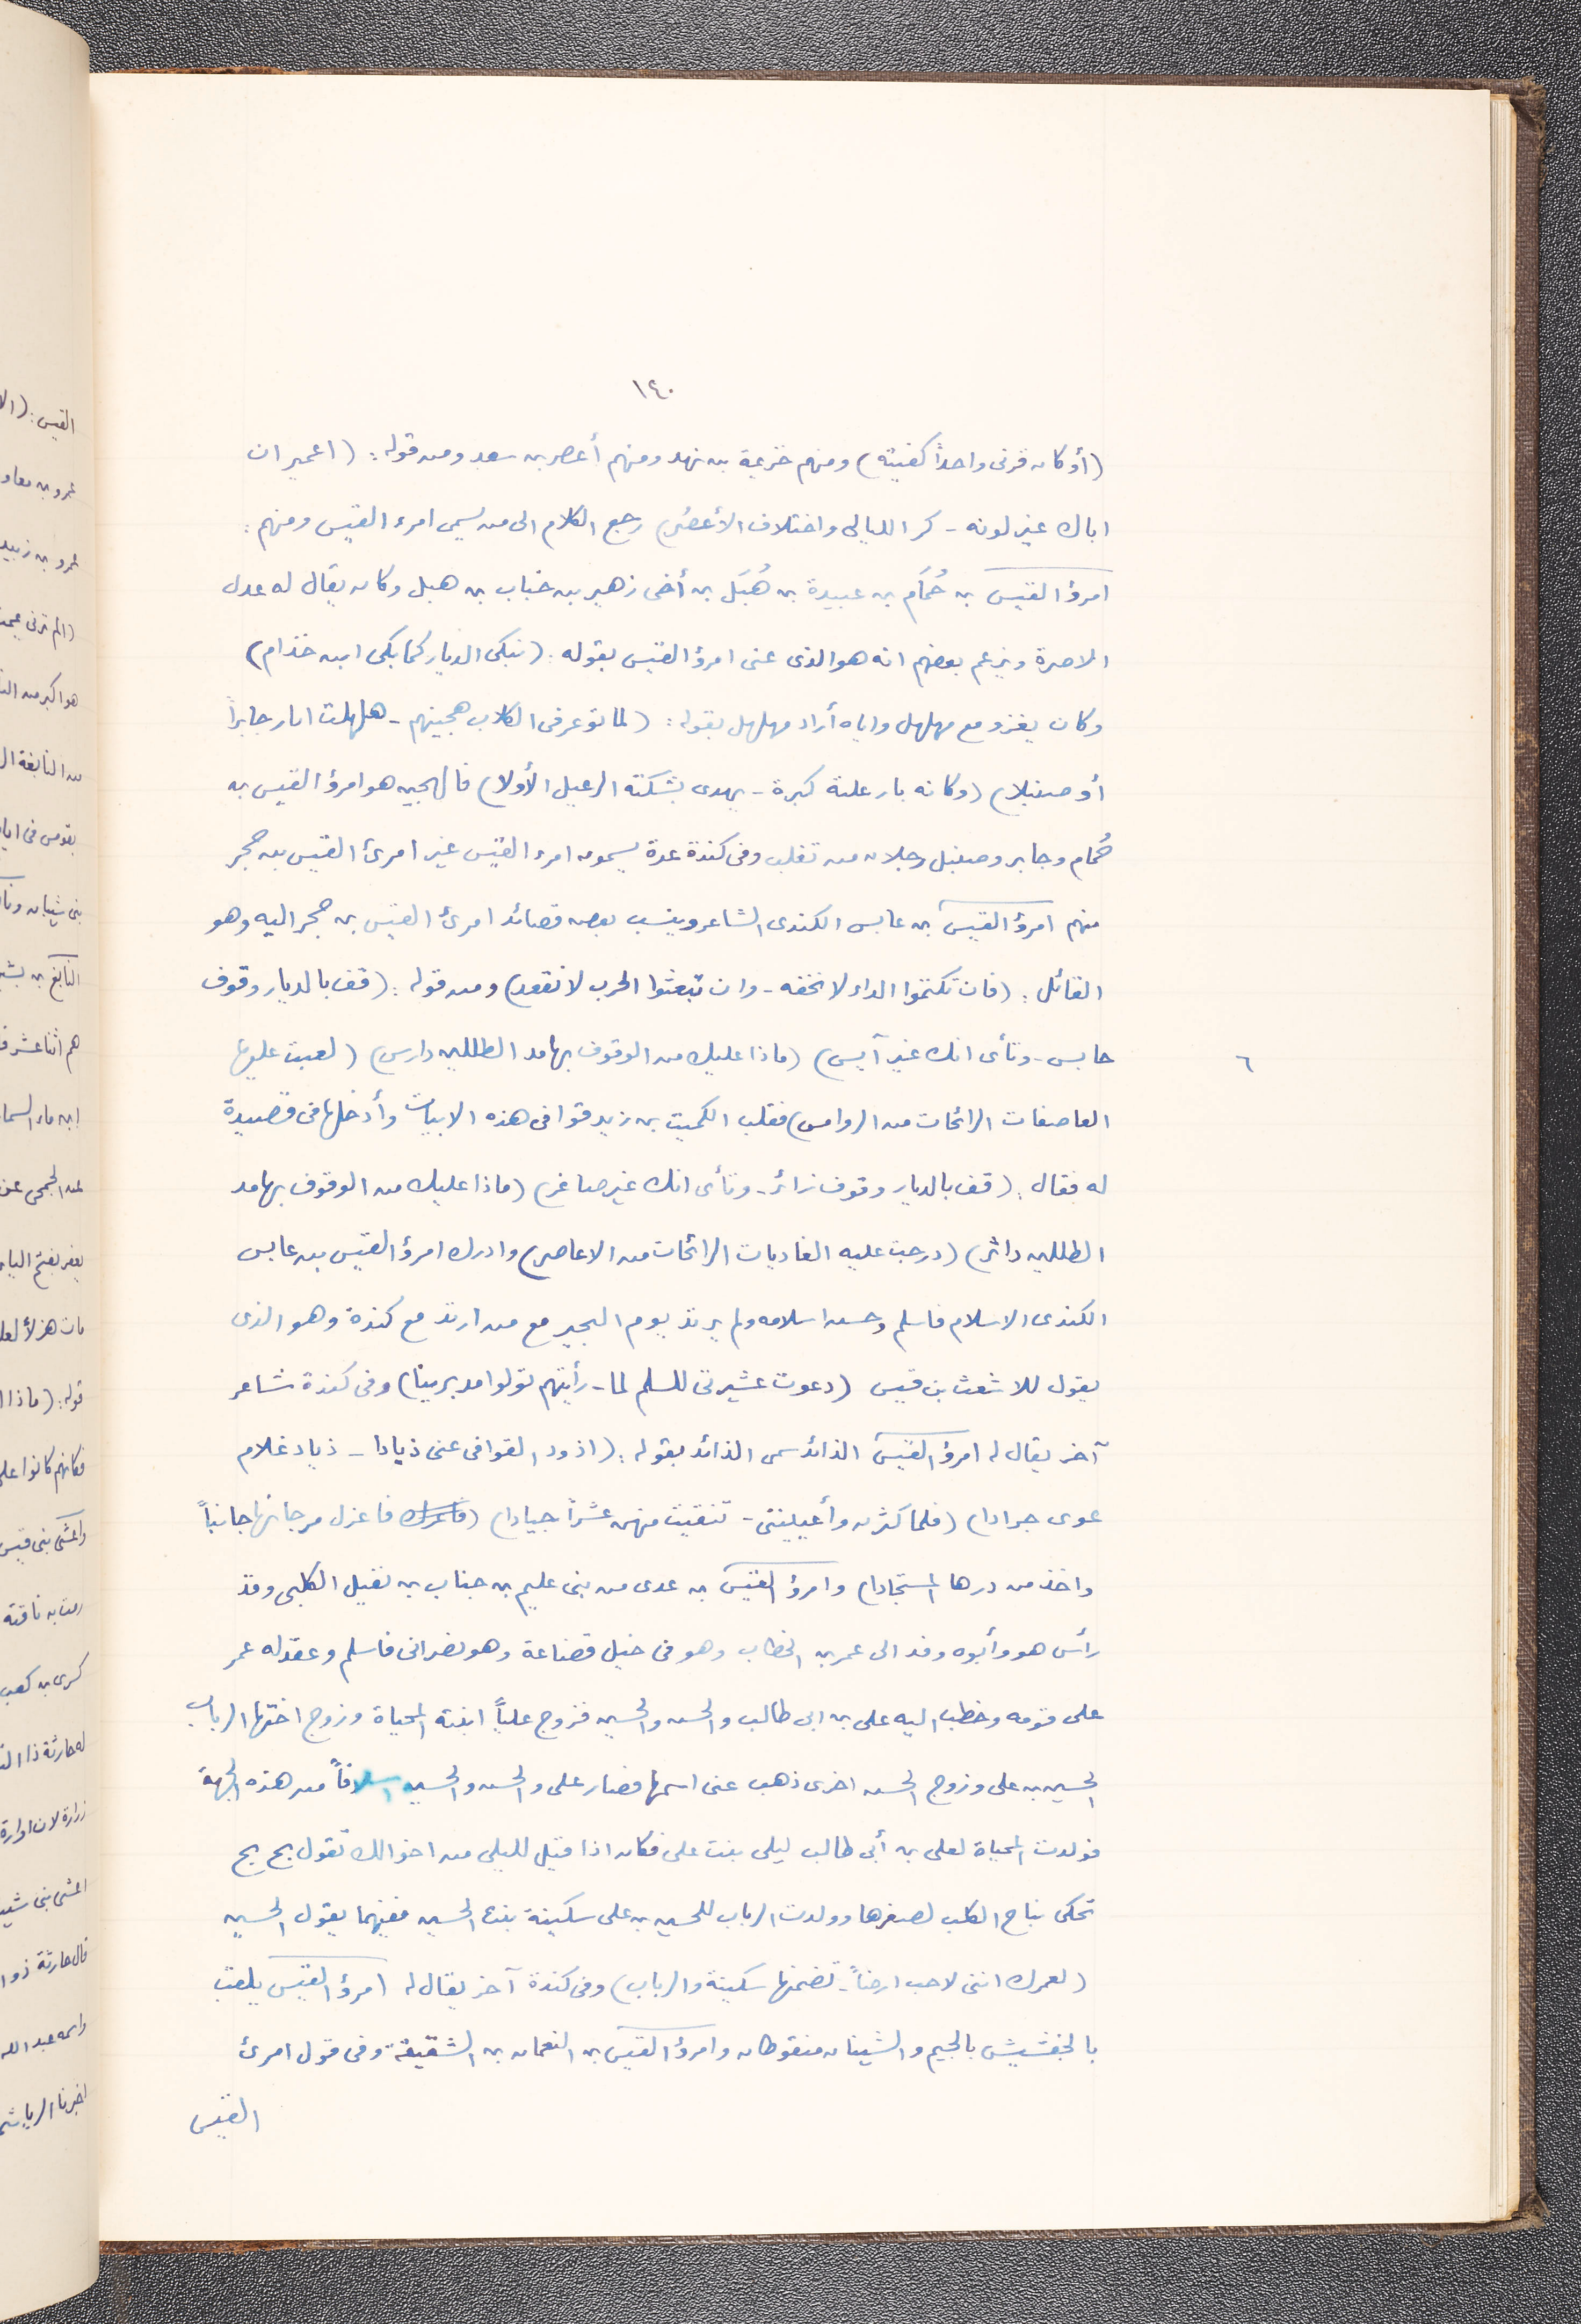 ١٤٠
(أو كان قرنى واحداً كفيته) ومنهم خزيمة بن نهد ومنهم أعصر بن سعد ومن قوله: (اعمير ان
اباك غير لونه - كر الليالى واختلاف الأعصر) رجع الكلام الى من يسمى امرء القيس ومنهم:
امرؤ القيس بن حُمَام بن عبيدة بن هُبَل بن أخى زهير بن خباب بن هبل وكان يقال له عدل
الاصرة ويزعم بعضهم انه هو الذى عنى امرؤ القيس بقوله: (نبكى الديار كما بكى ابن خذام)
وكان يغزو مع مهلهل واياه أراد مهلهل بقوله: (لما توعر فى الكلاب هجينهم - هلهلت اثار جابراً
أو صنبلا) (وكانه باز علته كبرة - يهدى بشكته الرعيل الأولا) فالهجين هو امرؤ القيس بن
حُمام وجابر وصنبل رجلان من تغلب وفى كندة عدة يسمون امرء القيس غير امرئ القيس بن حجر
منهم امرؤ القيس بن عابس الكندى الشاعر وينسب بعض قصائد امرئ القيس بن حجر اليه وهو
القائل: (فان تكتموا الداء لا نخفه - وان تبعثوا الحرب لا نقعد) ومن قوله: (قف بالديار وقوف
حابس - وتأى انك غير آيس) (ماذا عليك من الوقوف بهامد الطللين دارس) (لعبت عليها
٦
العاصفات الرائحات من الروامس) فقلب الكميت بن زيد قوافى هذه الابيات وأدخلها فى قصيدة
له فقال: (قف بالديار وقوف زائر - وتأى انك غير صاغر) (ماذا عليك من الوقوف بهامد
الطللين داثر) (درجت عليه الغاديات الرائحات من الاعاصر) وادرك امرؤ القيس بن عابس
الكندى الاسلام فاسلم وحسن اسلامه ولم يرتد يوم البجير مع من ارتد مع كندة وهو الذى
يقول للاشعث بن قيس (دعوت عشيرتى للسلم لما - رأيتهم تولوا مدبرينا) وفى كندة شاعر
آخر يقال له امرؤ القيس الذائد سمى الذائد بقوله: (اذود القوافى عنى ذيادا - ذياد غلام
غوى جرادا) (فلما كثرن وأعيينتى - تنقيت منهن عشراً جيادا) (فاعزل مرجانها جانباً
واخذ من درها المستجادا) وامرؤ القيس بن عدى من بنى عليم بن جناب بن نفيل الكلبى وقد
رأس هو وأبوه وفد الى عمر بن الخطاب وهو فى خيل قضاعة وهو نصرانى فاسلم وعقد له عمر
على قومه وخطب اليه على بن ابى طالب والحسن والحسين فزوج علياً ابنته المحياة وزوج اختها الرباب
الحسين بن على وزوج الحسن اخرى ذهب عنى اسمها فصار على والحسن والحسين اسلافاً من هذه الجهة
فولدت المحياة لعلى بن أبى طالب ليلى بنت على فكان اذا قيل لليلى من اخوالك تقول بح بح
تحكى نباح الكلب لصغرها وولدت الرباب للحسين بن على سكينة بنت الحسين ففيهما يقول الحسين
(لعمرك اننى لاحب ارضاً - تضمنها سكينة والرباب) وفى كندة آخر يقال له امرؤ القيس يلقب
بالجفشيش بالجيم والشينان منقوطان وامرؤ القيس بن النعمان بن الشقيقة وفى قول امرئ
القيس